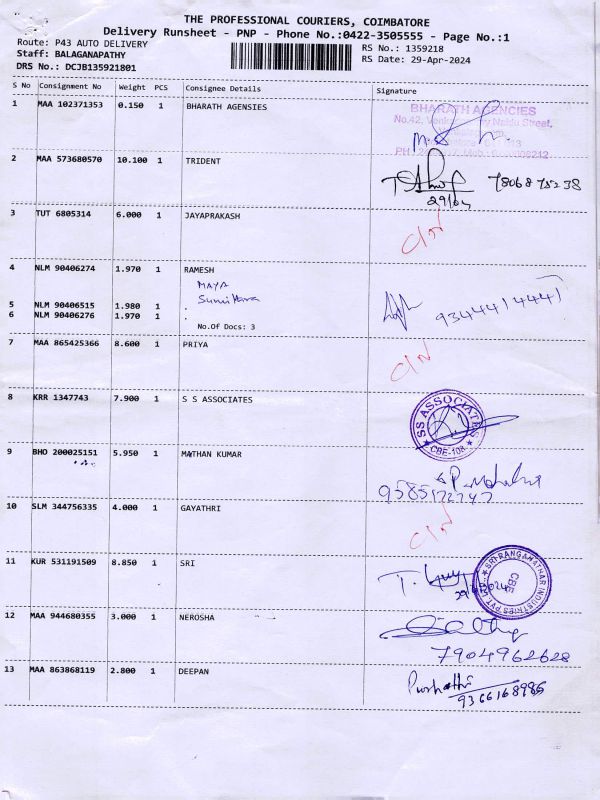 THE PROFESSIONAL COURIERS, COIMBATORE
Delivery Runsheet - PNP - Phone No.:0422-3505555 - Page No.:1
Route: P43 AUTO DELIVERY
Staff: BALAGANAPATHY
DRS No.: DCJB135921801
RS No.: 1359218
RS Date: 29-Apr-2024
S No Consignment No Weight PCS Consignee Details Signature
1 MAA 102371353 0.150 1 BHARATH AGENSIES
BHARATH AGENCIES
2 MAA 573680570 10.100 1 TRIDENT
78068 75238
29/04
3 TUT 6805314 6.000 1 JAYAPRAKASH
C/N
4 NLM 90406274 1.970 1 RAMESH
MAYA
5 NLM 90406515 1.980 1 .
6 NLM 90406276 1.970 1 .
9344414441
No.Of Docs: 3
7 MAA 865425366 8.600 1 PRIYA
C/N
8 KRR 1347743 7.900 1 S S ASSOCIATES
SS ASSOCIATES
CBE-108
9 BHO 200025151 5.950 1 MATHAN KUMAR
9585172747
10 SLM 344756335 4.000 1 GAYATHRI
C/N
11 KUR 531191509 8.850 1 SRI
SRI RANGANATHAR INDUSTRIES PVT LTD
CBE
12 MAA 944680355 3.000 1 NEROSHA
7904962628
13 MAA 863868119 2.800 1 DEEPAN
9366168986